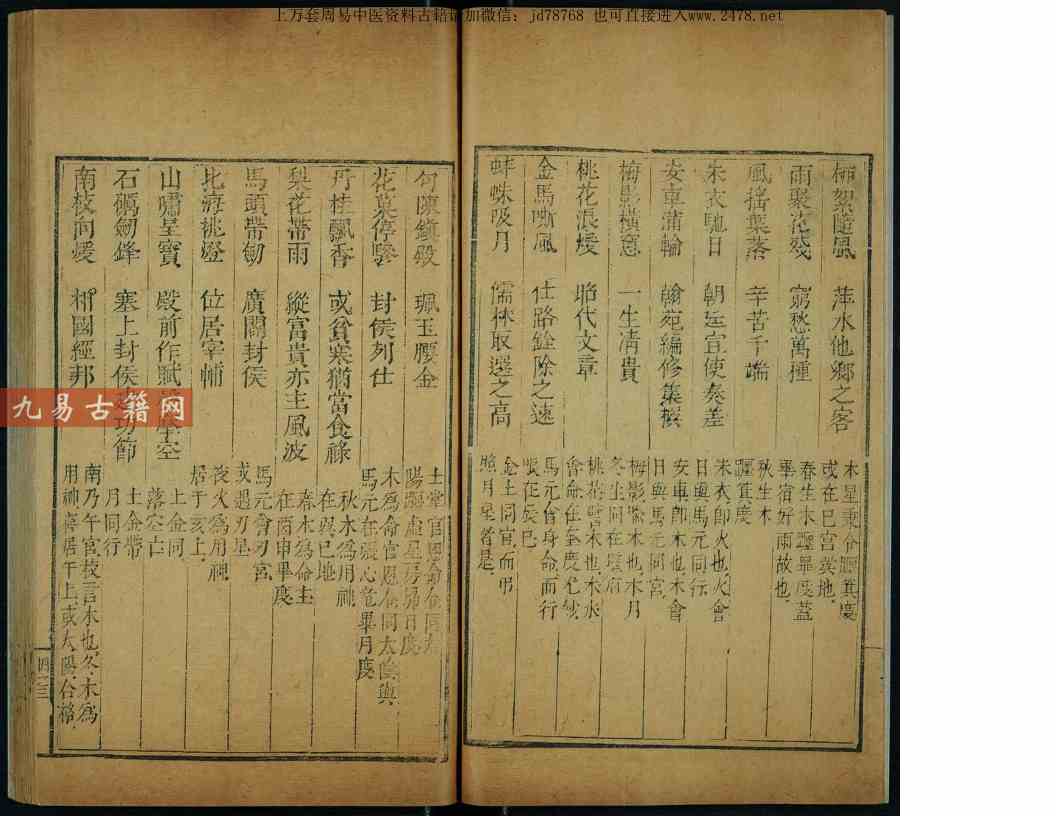 上万套周易中医资料古籍请加微信: jd78768 也可直接进入www.2478.net
柳絮隨風 萍水他鄉之客 木星乘令躔箕度
或在巳宮糞地
雨聚花殘 窮愁萬種 春生木躔畢度蓋
畢宿好雨故也
風搖葉落 辛苦千端 秋生木
躔箕度
朱衣馳日 朝廷宣使奏差 朱衣即火也火會
日與馬元同行
安車蒲輪 翰苑編修集撰 安車即木也木會
日與馬元同宮
梅影橫窓 一生清貴 梅影 木也木月
冬生同在
桃花浪煖 昭代文章 桃花 木也木水
會命在奎度
金馬嘶風 仕路銓除之速 馬元會身命而行
在辰巳
蚌蛛吸月 儒林取選之高 金土同宮而弔
照月星皆是
勾陳鎮殿 珮玉腰金 土掌官
陽躔虛星房昴日度
花蕚停驂 封侯列仕 木為命官 同太陰與
馬元在 心危畢月度
丹桂飄香 或貧寒猶當食祿 秋水為用神
在巽巳地
梨花帶雨 縱富貴亦主風波 春木為命主
在酉申畢度
馬頭帶劒 廣闊封侯 馬元會刃宮
或遇刃星
北海挑燈 位居宰輔 夜火為用神
居于亥上
山嘯呈寶 殿前作賦 空 土金同
落空亡
石礪劒鋒 塞上封侯 功節 土金帶
月同行
南枝向煖 相國經邦 南乃午宮枝言木也冬木為
用神 居午上或太陽合格
四十三
九易古籍网